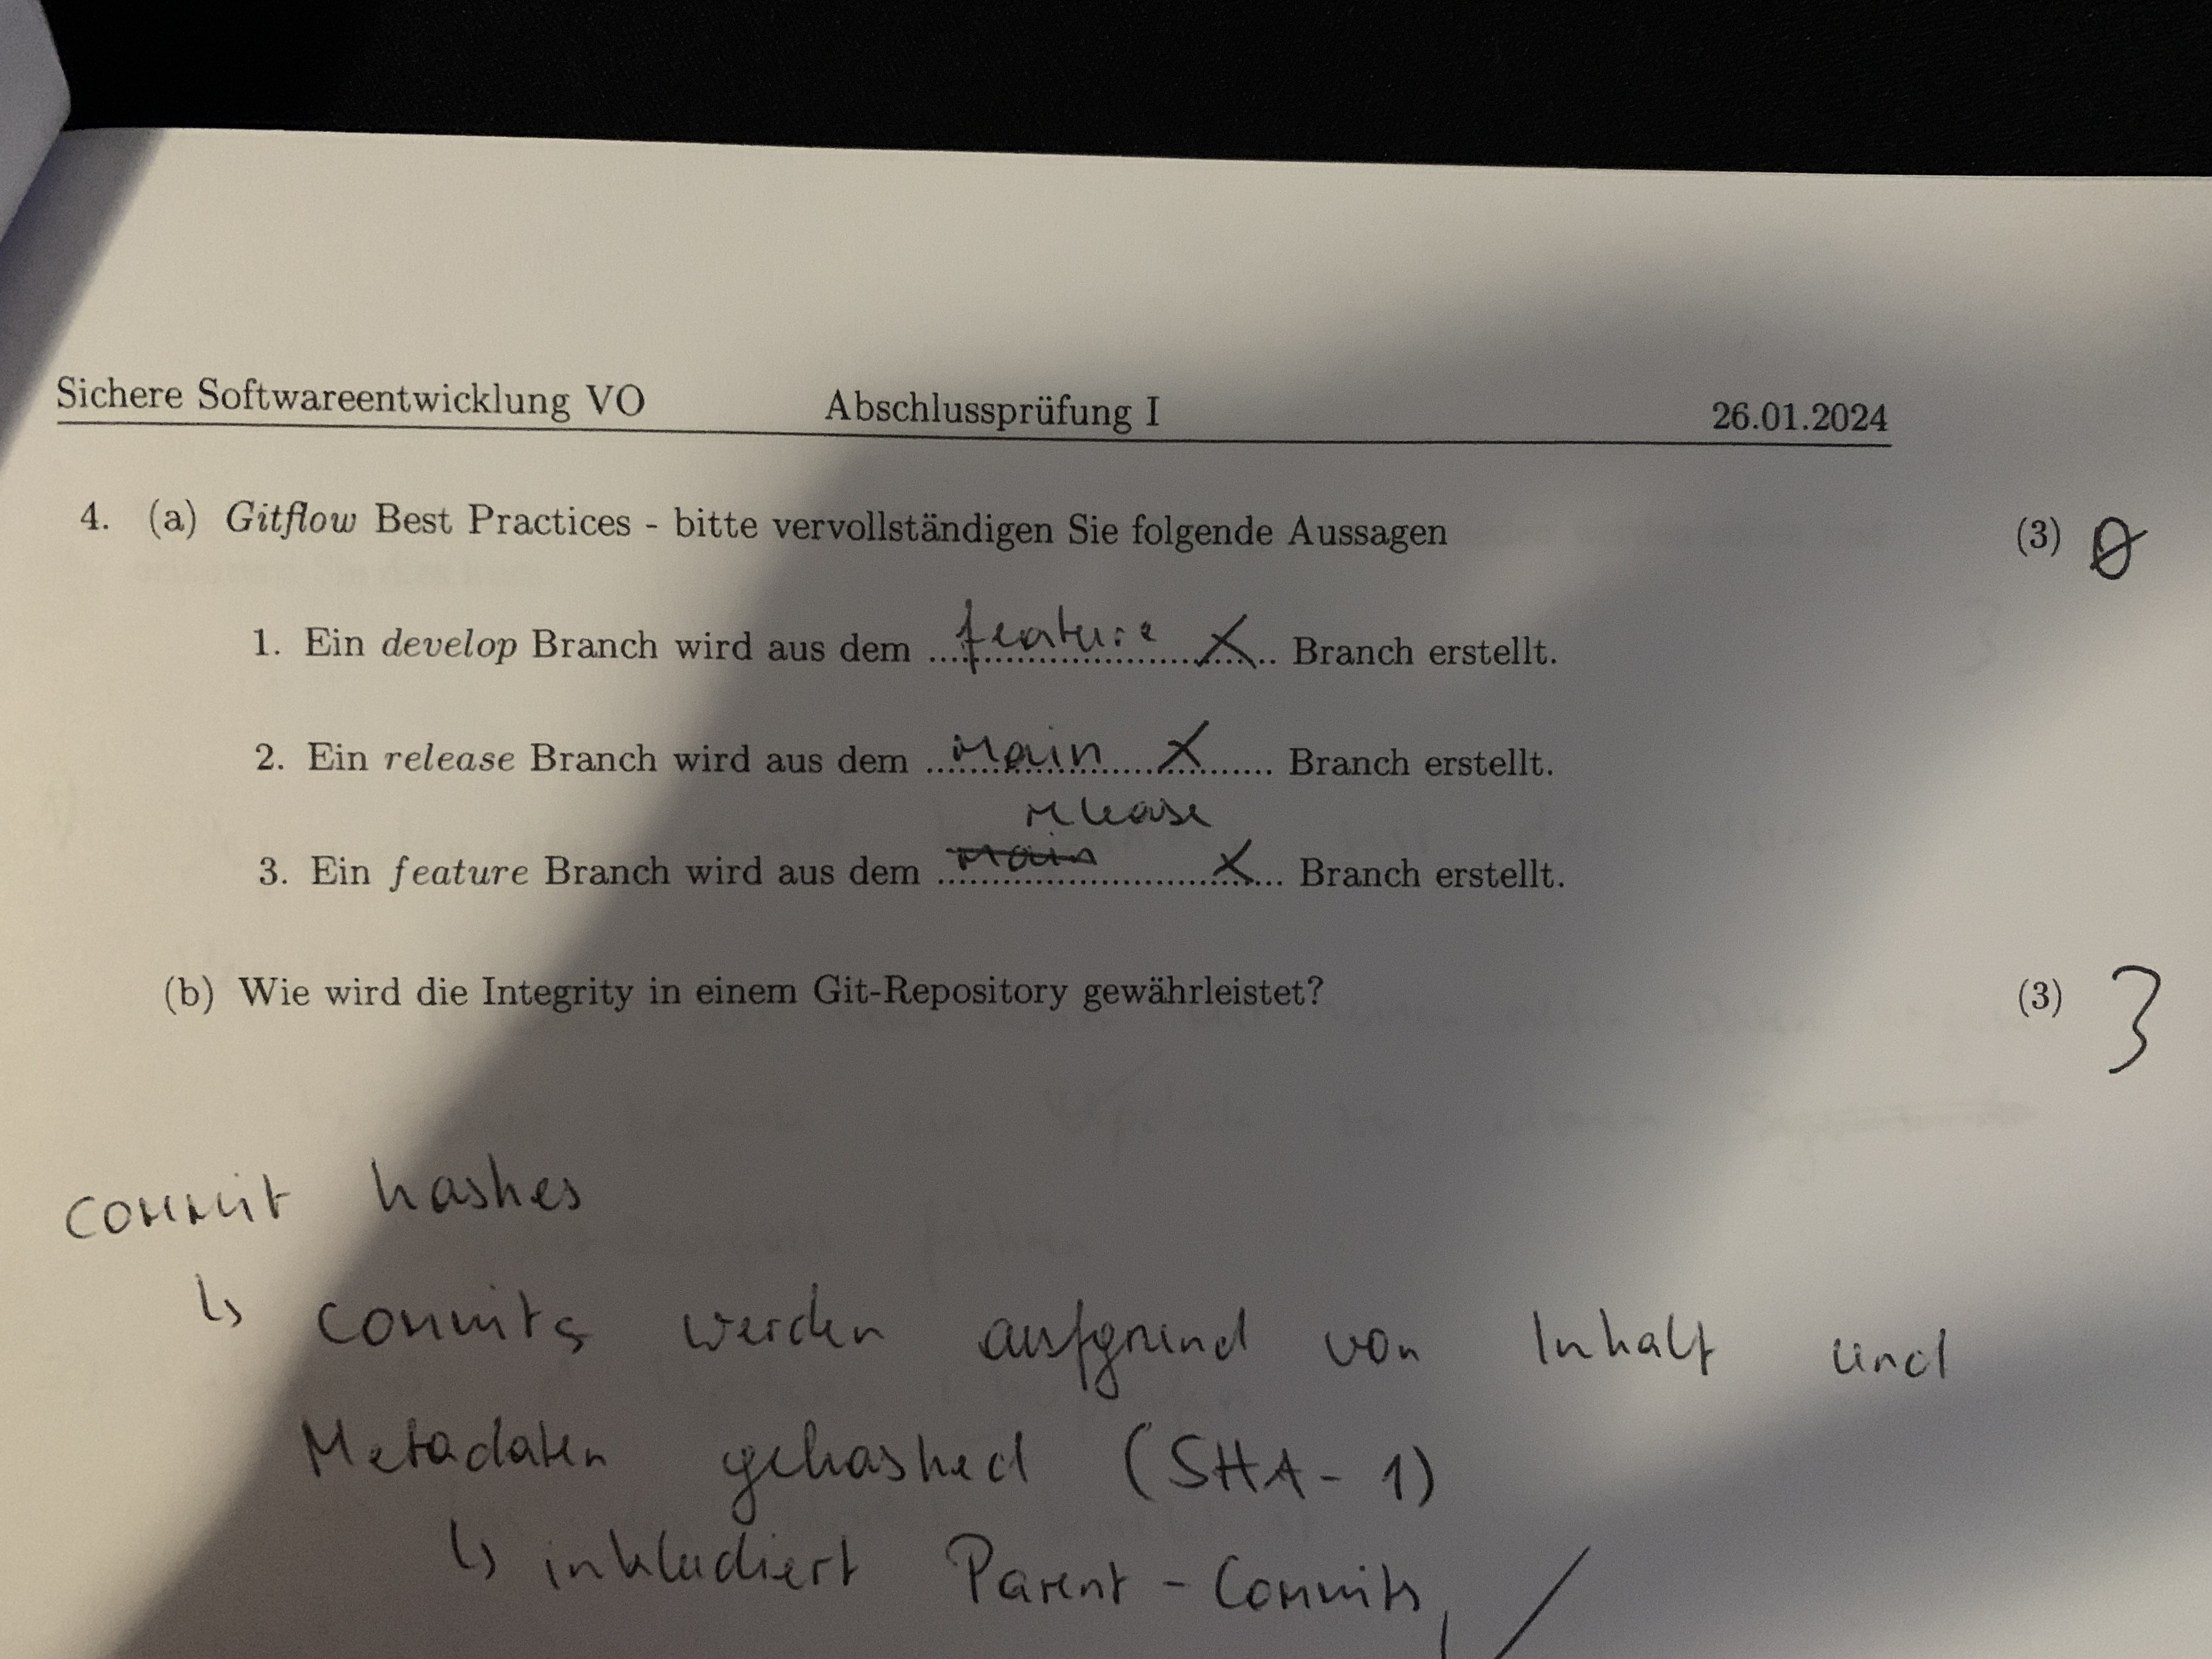 Sichere Softwareentwicklung VO Abschlussprüfung I 26.01.2024
4. (a) Gitflow Best Practices - bitte vervollständigen Sie folgende Aussagen (3) 0
1. Ein develop Branch wird aus dem ....feature X.. Branch erstellt.
2. Ein release Branch wird aus dem ....main X.... Branch erstellt.
release
3. Ein feature Branch wird aus dem ....main X.... Branch erstellt.
(b) Wie wird die Integrity in einem Git-Repository gewährleistet? (3) 3
commit hashes
↳ commits werden aufgrund von Inhalt und
Metadaten gehashed (SHA-1)
↳ inkludiert Parent-Commits